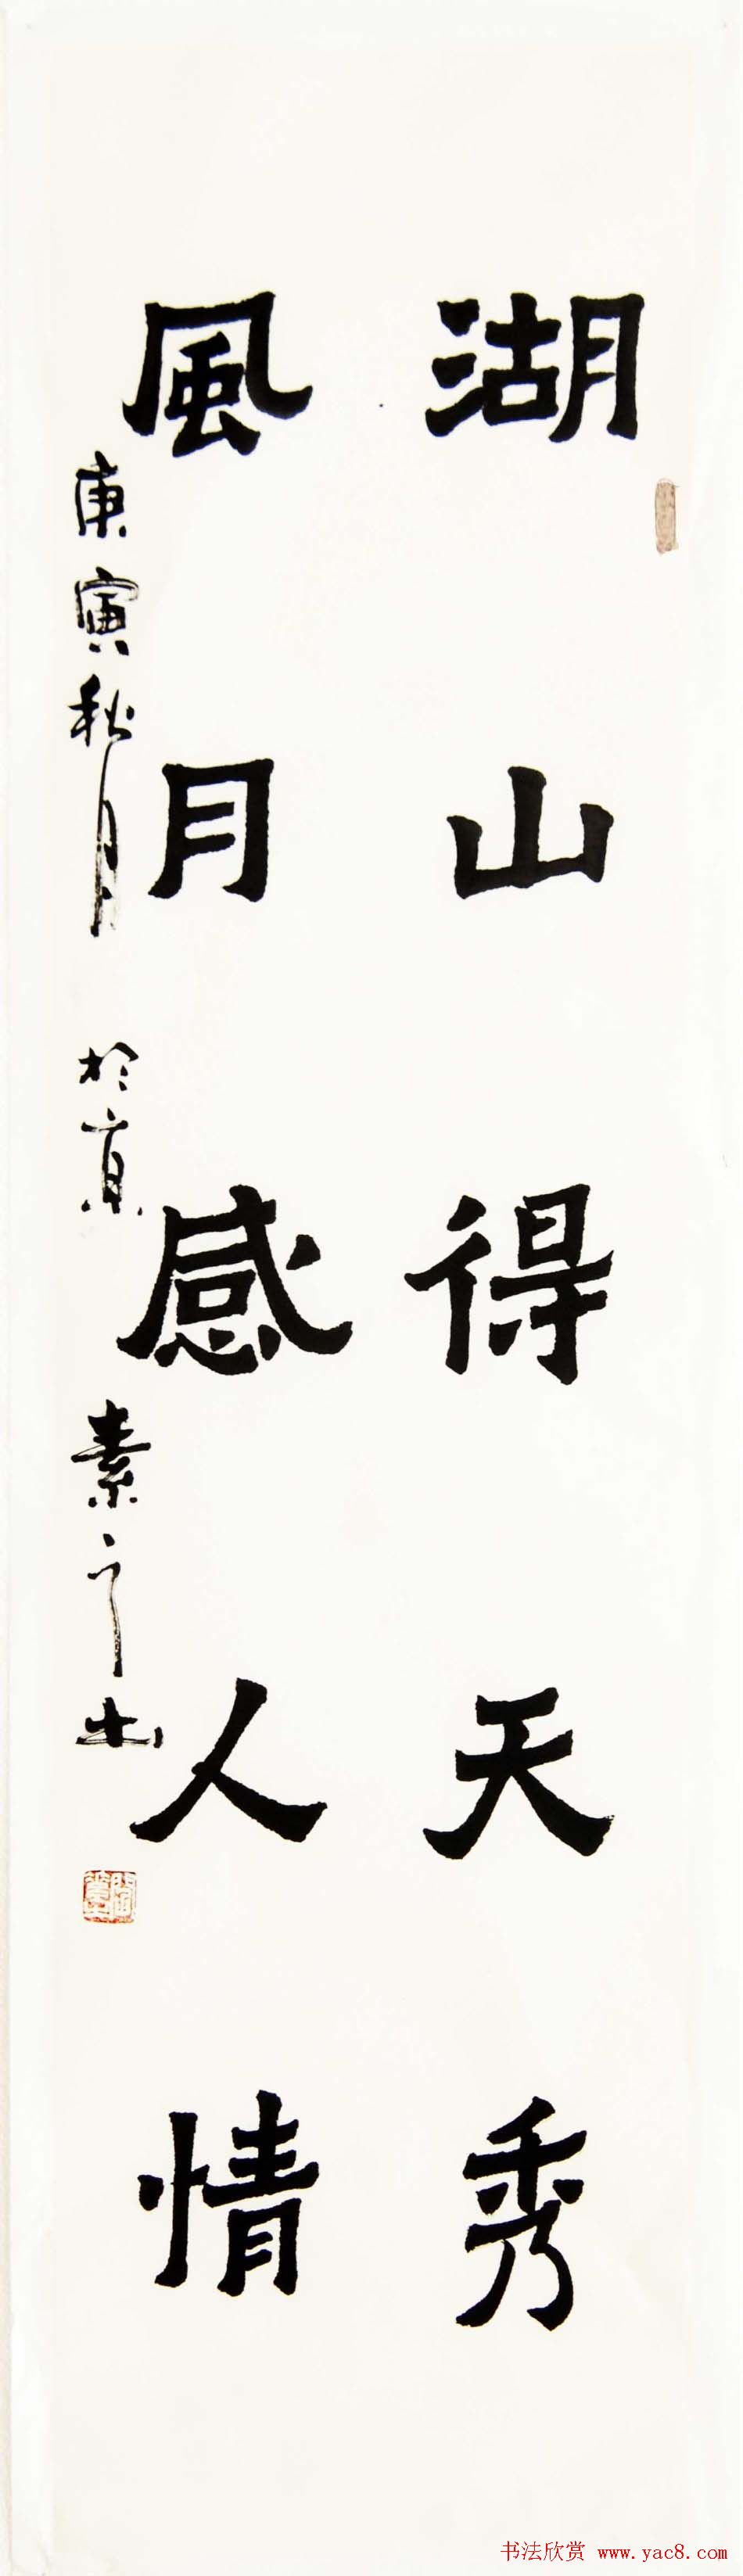 湖山得天秀
風月感人情
庚寅秋月於京素之书
书法欣赏 www.yac8.com